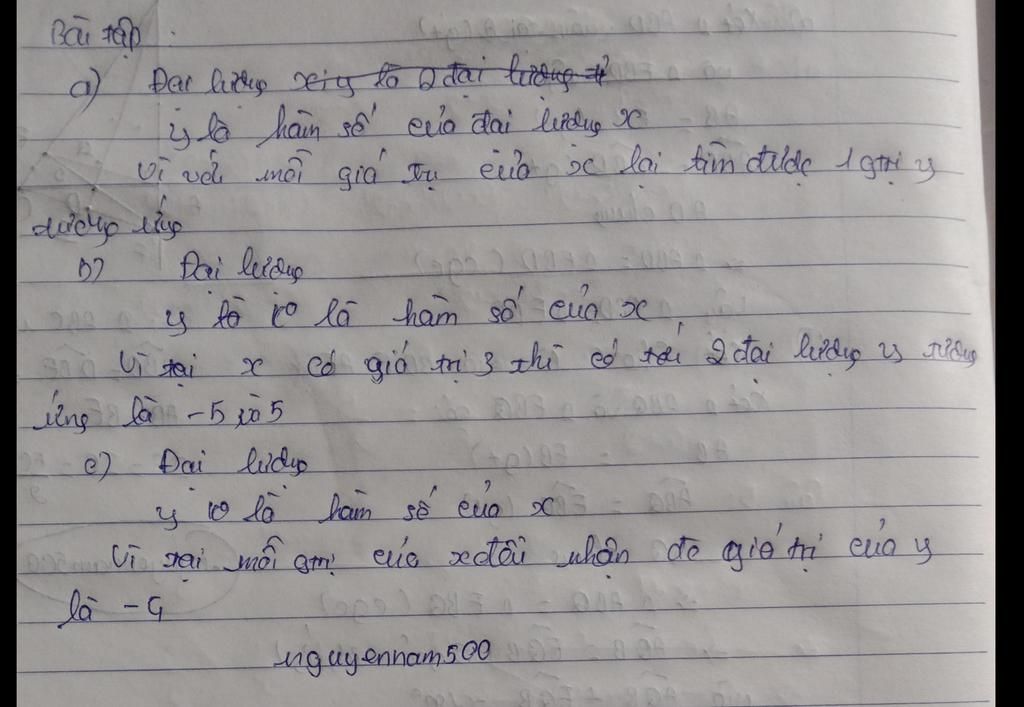 Bài tập :
a) Đại lượng x và y là 2 đại lượng
y là hàm số của đại lượng x
Vì với mỗi giá trị của x lại tìm được 1 gtrị y
tương ứng
b) Đại lượng
y là ko là hàm số của x
Vì tại x có giá trị 3 thì có tới 2 đại lượng y tương
ứng là -5 và 5
c) Đại lượng
y là hàm số của x
Vì tại mỗi gtrị của x đều nhận đc giá trị của y
là -4
nguyennam500